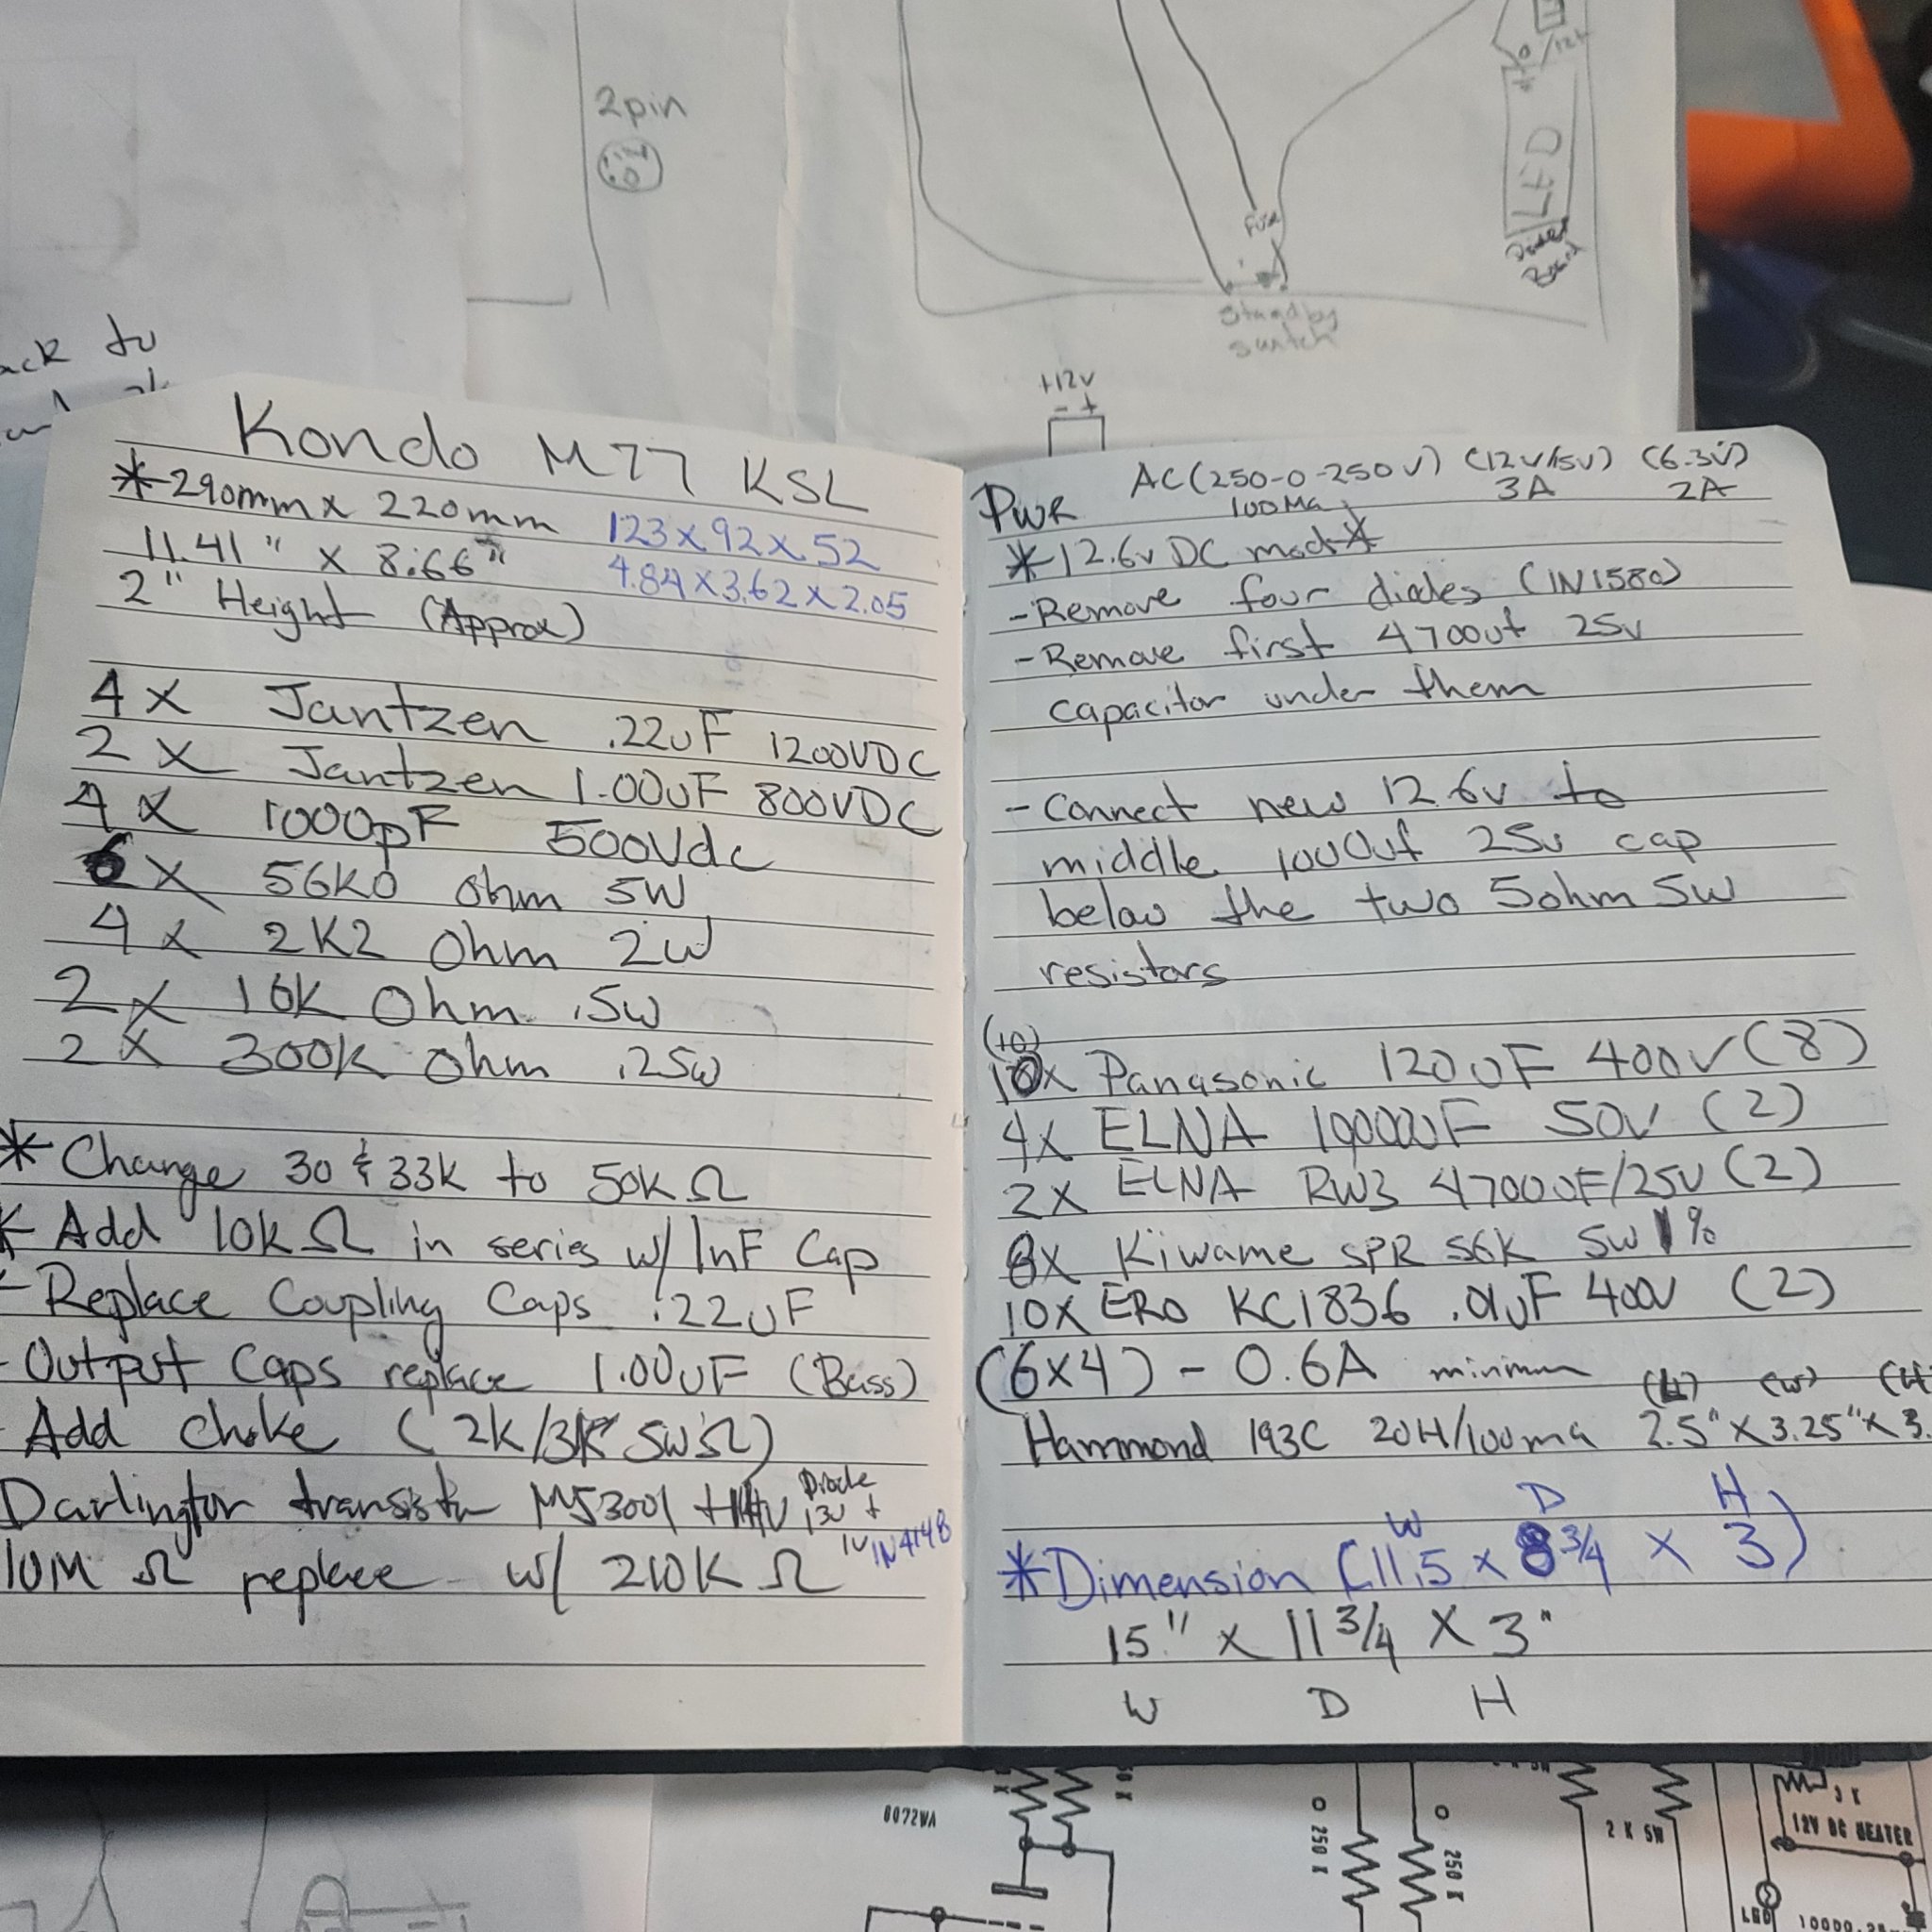 2pin
Fuse
Standby
switch
LED
Driver
Board
+12v
- +
ack to
Kondo M77 KSL
*-290mm x 220mm
123x92x52
11.41" x 8.66"
4.84x3.62x2.05
2" Height (Approx)
4 x Jantzen .22uF 1200VDC
2 x Jantzen 1.00uF 800VDC
4 x 1000pF 500Vdc
6 x 56K0 ohm 5W
4 x 2K2 Ohm 2W
2 x 16K Ohm .5w
2 x 300k ohm .25w
* Change 30 & 33k to 50kΩ
* Add 10kΩ in series w/ 1nF Cap
- Replace Coupling Caps .22uF
- Output Caps replace 1.00uF (Bass)
- Add choke (2k/3k 5wΩ)
Darlington transistr MJ3001 + Diode 13v +
1N4148
10M Ω replace w/ 210K Ω
PWR AC(250-0-250V) (12V/15V) (6.3V)
100Ma 3A 2A
*-12.6v DC mod*
- Remove four diodes (1N1580)
- Remove first 4700uf 25v
capacitor under them
- Connect new 12.6v to
middle 1000uf 25v cap
below the two 5ohm 5w
resistors
(10)
10x Panasonic 120uF 400V (8)
4x ELNA 10000uF 50V (2)
2x ELNA RW3 4700uF/25V (2)
8x Kiwame SPR 56K 5W 1%
10x ERO KC1836 .01uF 400V (2)
(6x4) - 0.6A minimum
(W)
Hammond 193C 20H/100ma 2.5" x 3.25" x 3.
W D H
*Dimension (11.5 x 8 3/4 x 3)
15" x 11 3/4 x 3"
W D H
6072WA
250 K
250 K
2 K 5W
3 K
12V DC HEATER
LED